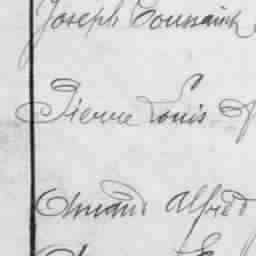 Joseph Toussaint
Pierre Louis
Armand Alfred